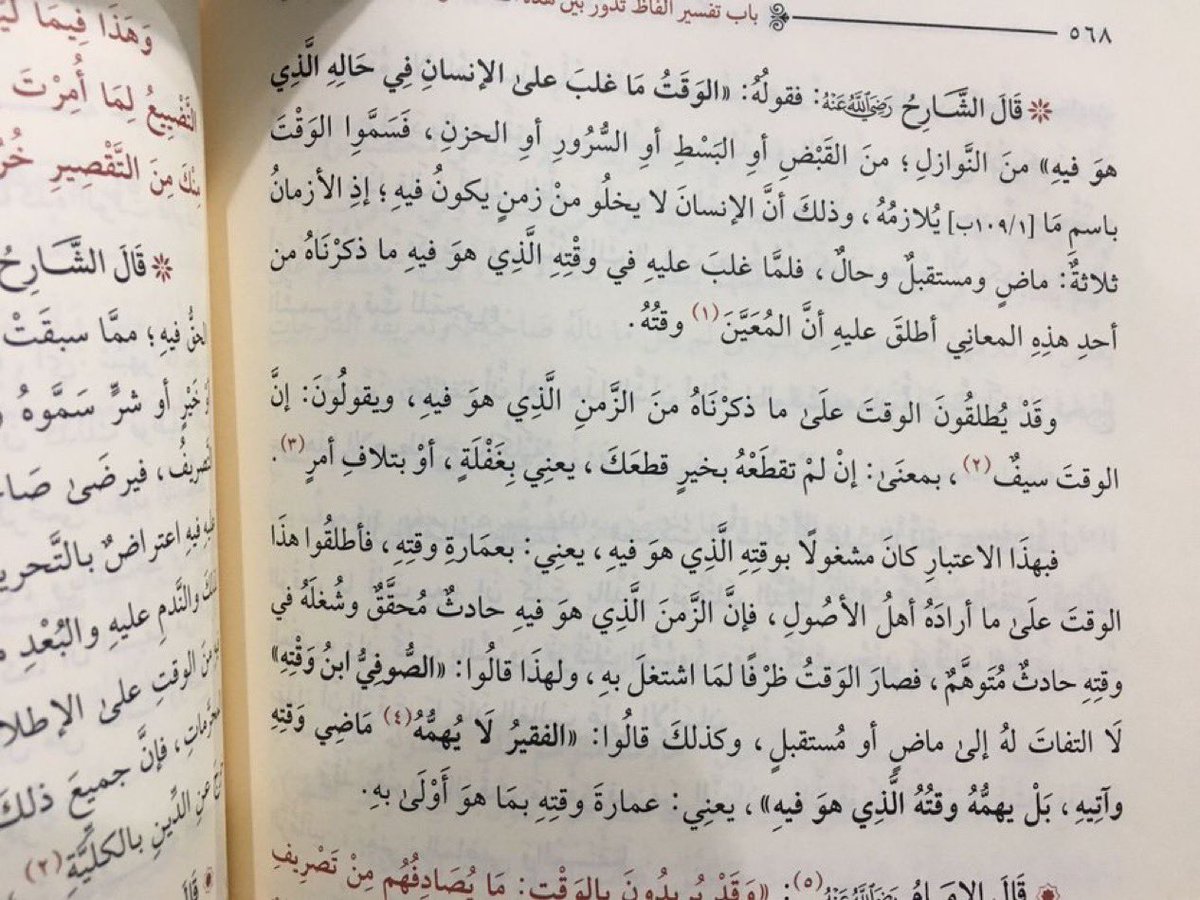 ٥٦٨
باب تفسير ألفاظ تدور بين هذه
❊ قَالَ الشَّارِحُ رَضِيَ اللَّهُ عَنْهُ: فقولُهُ: «الوَقَتُ مَا غلبَ علىٰ الإنسانِ فِي حَالِهِ الَّذِي
هوَ فيهِ» منَ النَّوازلِ؛ منَ القَبْضِ أوِ البَسْطِ أوِ السُّرُورِ أوِ الحزنِ، فَسَمَّوا الوَقْتَ
باسمِ مَا [١٠٩/١ب] يُلازمُهُ، وذلكَ أنَّ الإنسانَ لا يخلُو منْ زمنٍ يكونُ فيهِ؛ إذِ الأزمانُ
ثلاثةٌ: ماضٍ ومستقبلٌ وحالٌ، فلمَّا غلبَ عليهِ في وقتِهِ الَّذِي هوَ فيهِ ما ذكرْنَاهُ من
أحدِ هذِهِ المعانِي أطلقَ عليهِ أنَّ المُعَيَّنَ(١) وقتُهُ.
وقَدْ يُطلقُونَ الوقتَ علَىٰ ما ذكرْنَاهُ منَ الزَّمنِ الَّذِي هوَ فيهِ، ويقولُونَ: إنَّ
الوقتَ سيفٌ(٢)، بمعنَىٰ: إنْ لمْ تقطَعْهُ بخيرٍ قطعَكَ، يعنِي بِغَفْلَةٍ، أوْ بتلافِ أمرٍ(٣).
فبهذَا الاعتبارِ كانَ مشغولًا بوقتِهِ الَّذِي هوَ فيهِ، يعنِي: بعمَارةِ وقتِهِ، فأطلقُوا هذَا
الوقتَ علَىٰ ما أرادَهُ أهلُ الأصُولِ، فإنَّ الزَّمنَ الَّذِي هوَ فيهِ حادثٌ مُحقَّقٌ وشُغلَهُ في
وقتِهِ حادثٌ مُتَوهَّمٌ، فصارَ الوَقتُ ظرْفًا لمَا اشتغلَ بهِ، ولهذَا قالُوا: «الصُّوفيُّ ابنُ وَقْتِهِ»
لَا التفاتَ لهُ إلىٰ ماضٍ أو مُستقبلٍ، وكذلكَ قالُوا: «الفقيرُ لَا يُهمُّهُ(٤) مَاضِي وَقتِهِ
وآتِيهِ، بَلْ يهمُّهُ وقتُهُ الَّذِي هوَ فيهِ»، يعنِي: عمارةَ وقتِهِ بمَا هوَ أَوْلَىٰ بهِ.
قَالَ الإمَامُ رَضِيَ اللَّهُ عَنْهُ(٥): «وَقَدْ يُرِيدُونَ بِالوَقْتِ: مَا يُصَادِفُهُم مِنْ تَصْرِيفِ
وَهَذَا فِيمَا
التَّضْيِيعُ لِمَا أُمِرْتَ
مِنْكَ مِنَ التَّقْصِيرِ
❊ قَالَ الشَّارِحُ
الحقُّ فيهِ؛ ممَّا سبقَتْ
خَيْرٍ أو شرٍّ سَمَّوهُ
فيرضَىٰ
فيهِ اعتراضٌ
والنَّدمِ عليهِ والبُعْدِ
منَ الوقتِ علىٰ
فإنَّ جميعَ ذلكَ
عنِ الدِّينِ بالكليَّةِ(٢)